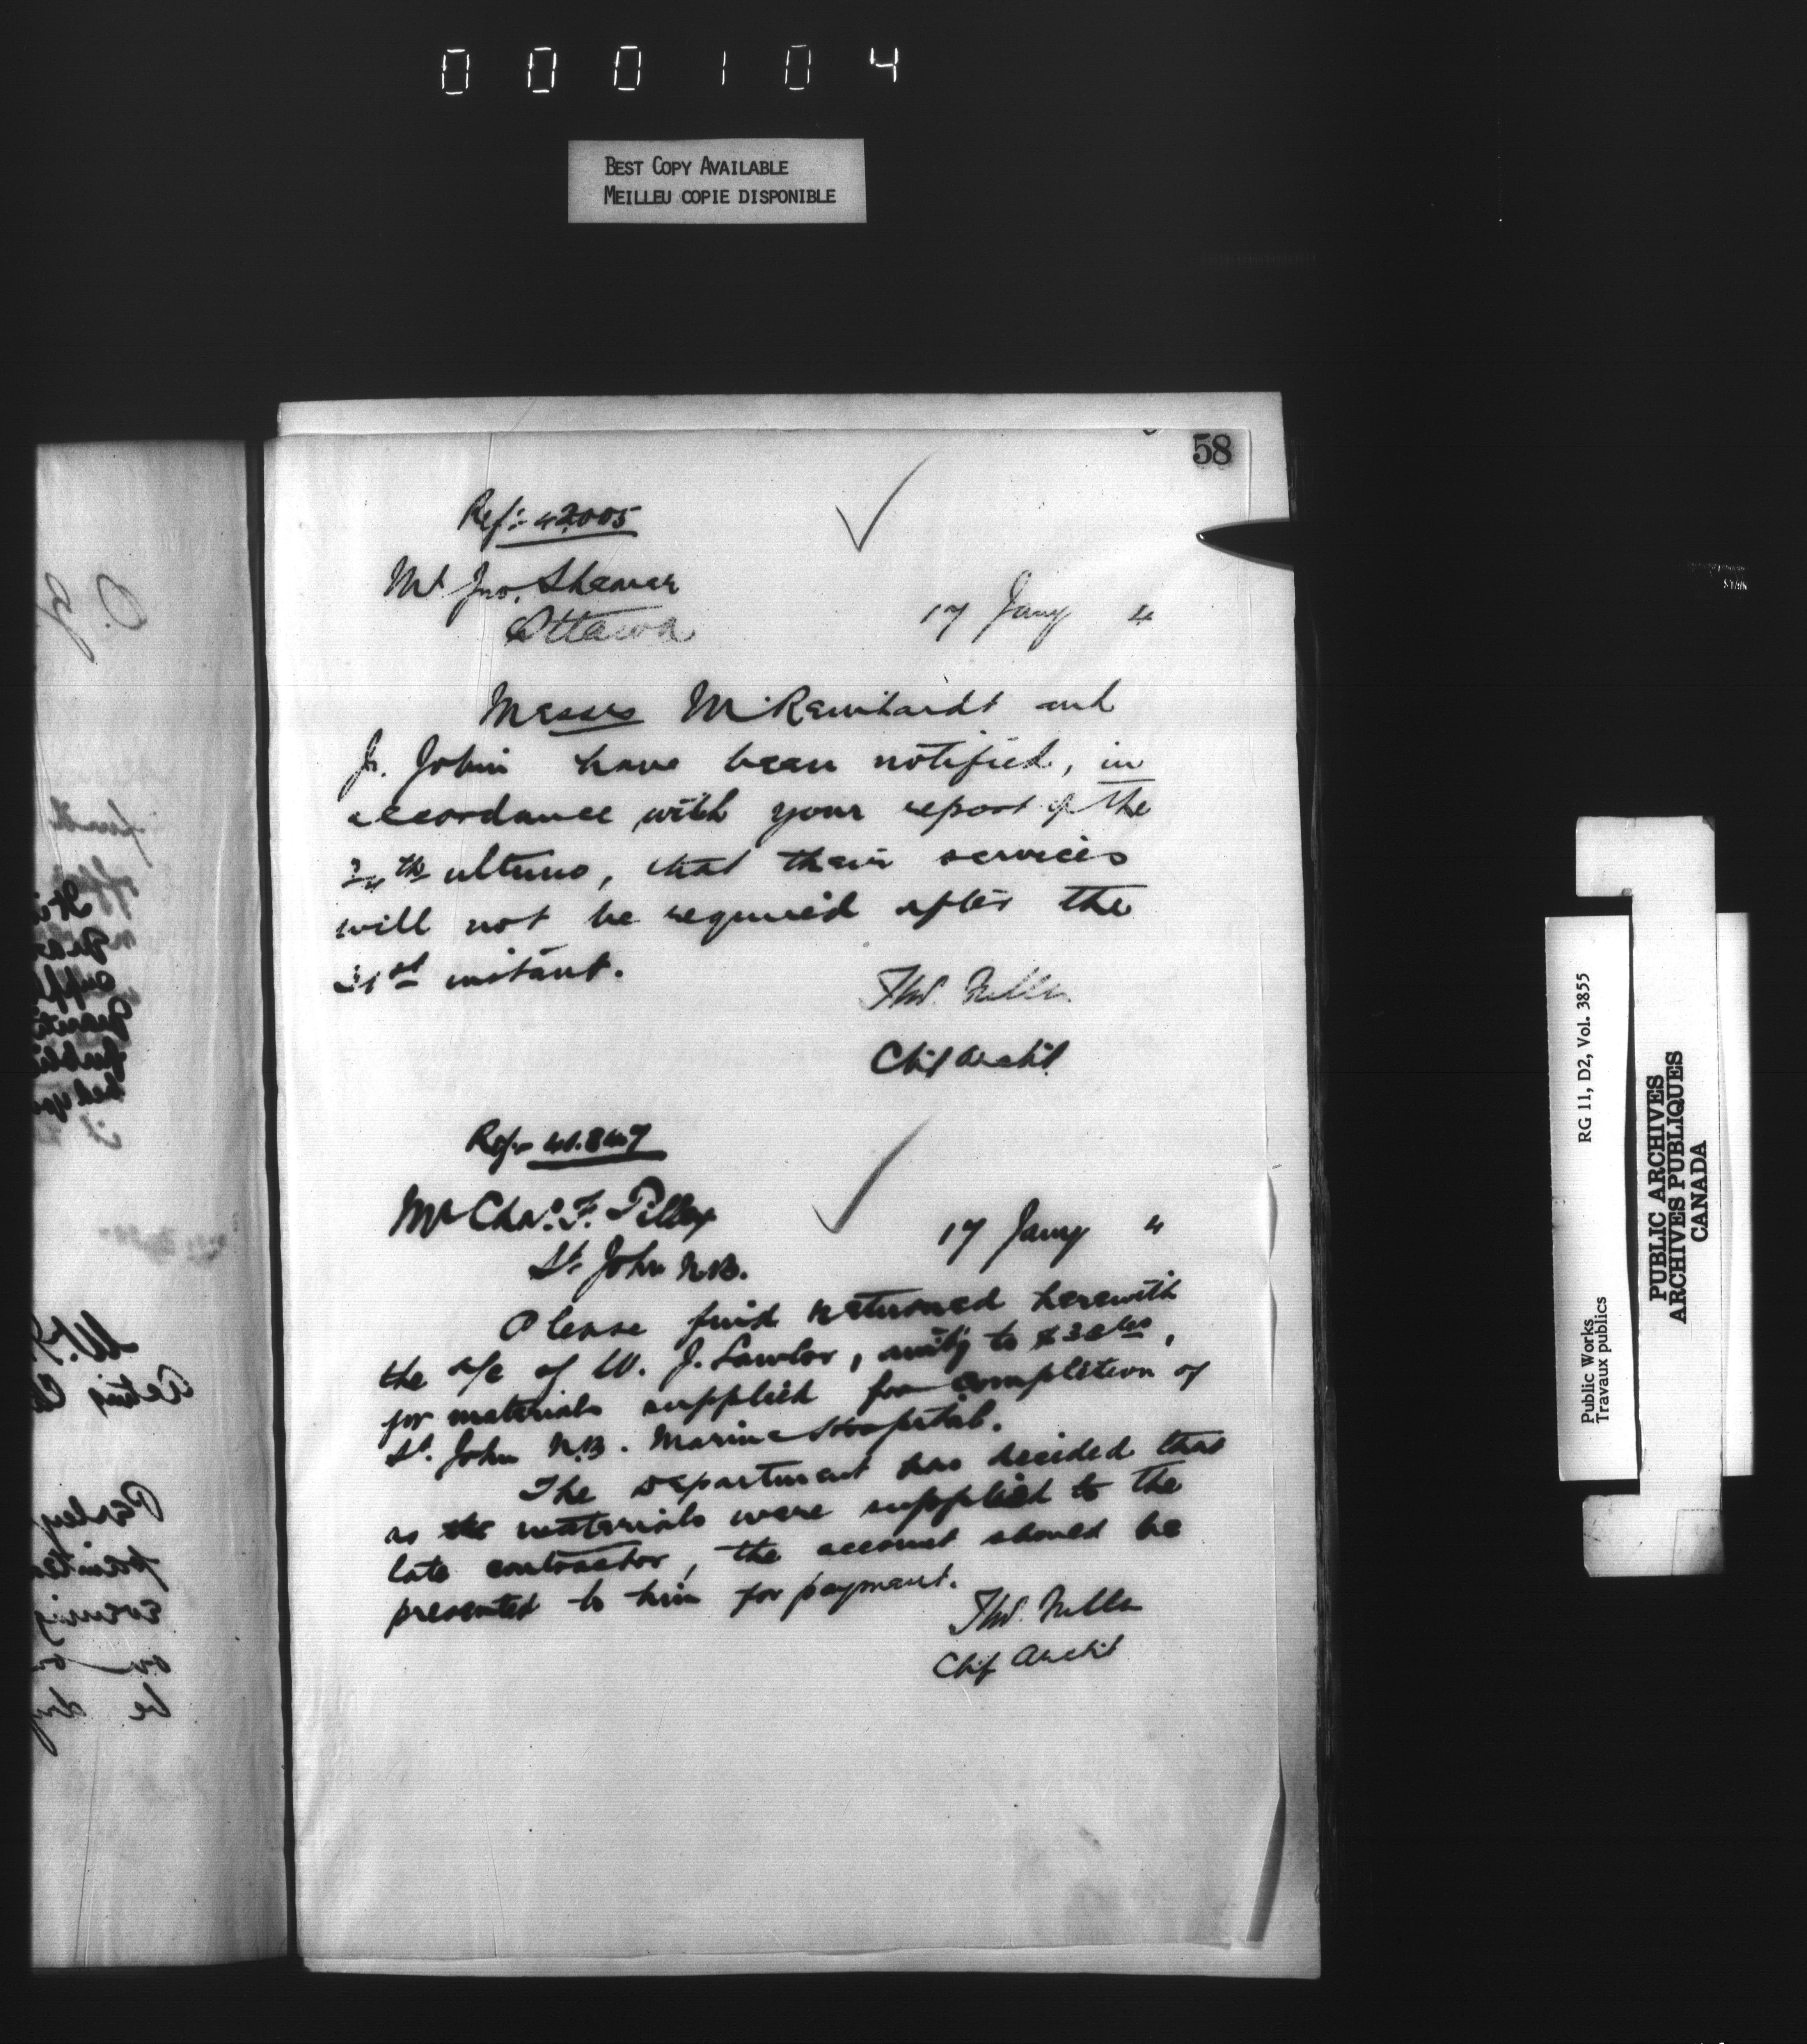 000104
BEST COPY AVAILABLE
MEILLEU COPIE DISPONIBLE
58
Ref:- 42005
Mr Jno. Shearer
Ottawa
17 Jany 4
Messrs M. Reinhardt and
J. John have been notified, in
accordance with your report of the
24th ultimo, that their services
will not be required after the
31st instant.
Thos. Fuller
Chf Archt.
Ref:-
Mr Chas. F. Tilley
St. John N.B.
17 Jany 4
Please find returned herewith
the a/c of W. J. Lawlor, amtg to
for materials supplied for completion of
St. John N.B. Marine Hospital.
The Department has decided that
as the materials were supplied to the
late contractor, the account should be
presented to him for payment.
Thos. Fuller
Chf Archt
RG 11, D2, Vol. 3855
Public Works
Travaux publics
PUBLIC ARCHIVES
ARCHIVES PUBLIQUES
CANADA